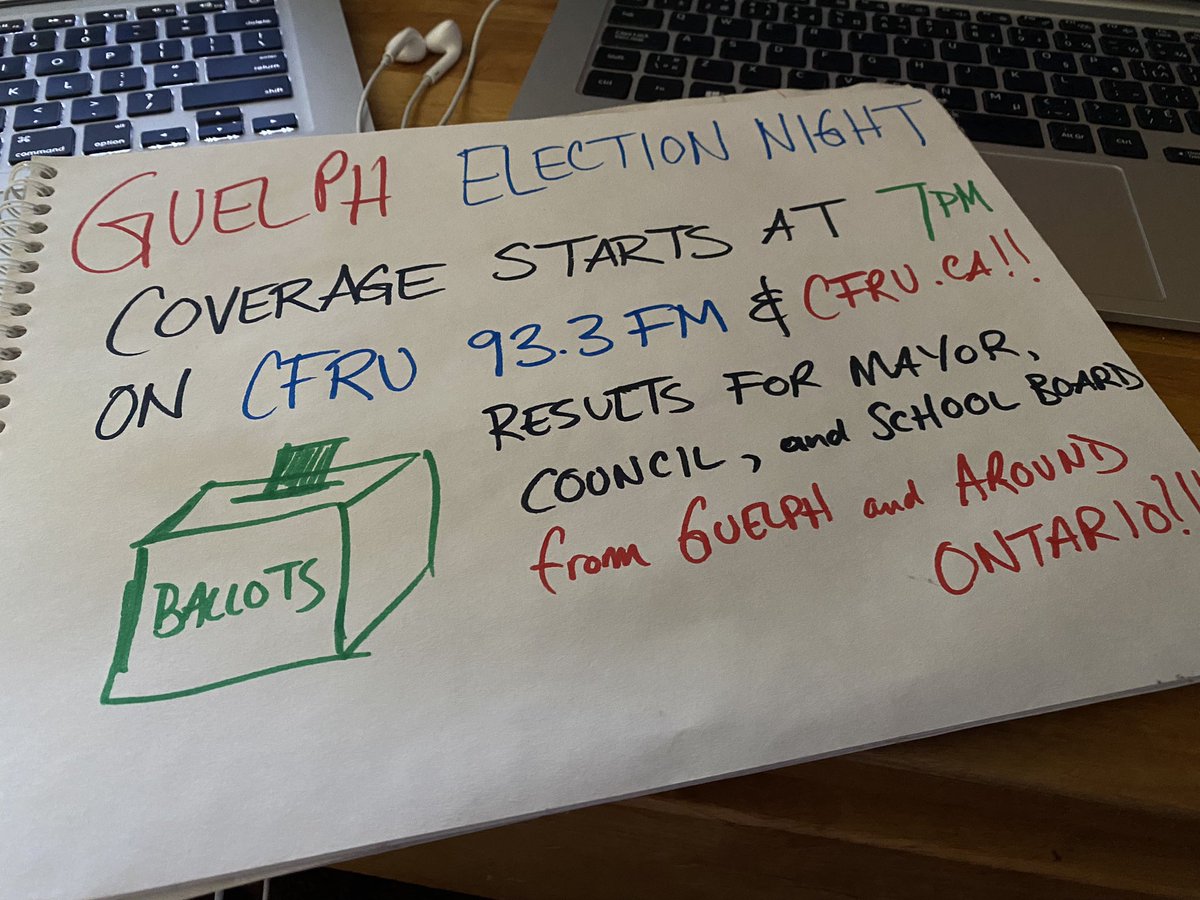 GUELPH ELECTION NIGHT
COVERAGE STARTS AT 7PM
ON CFRU 93.3 FM & CFRU.CA!!
RESULTS FOR MAYOR,
COUNCIL, and SCHOOL BOARD
from GUELPH and AROUND
ONTARIO!!!
BALLOTS
delete
return
shift
command
option
Alt Gr
Ctrl
Ctrl
Fn